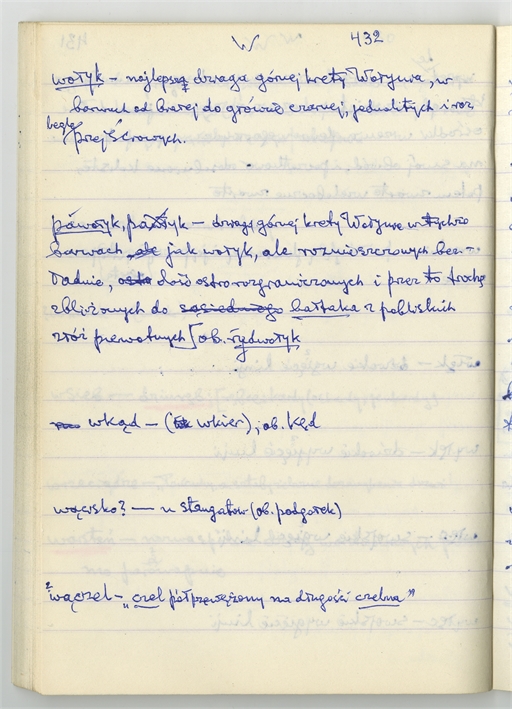 W 432
wołyk – najlepszą dzwaga górnej kręty Wołynia, w
barwach od białej do głównie czarnej, jednolitych i roz
beglę przejścrowych.
páwołyk, pałłyk – dzwagi górnej kręty Wołynia w tychże
barwach ale jak wołyk, ale rozmieszczonych bez-
ładnie, osto dość ostro rozgraniczonych i przez to trochę
zbliżonych do sąsiedniego bałtaka z pobliskich
złóż pierwotnych [ob. rydwołyk
wkąd – (wkier), ob. kęd
wącsko? – u Stangatów (ob. podgorek)
wączel – „czel półprzewężony na długości czelna"